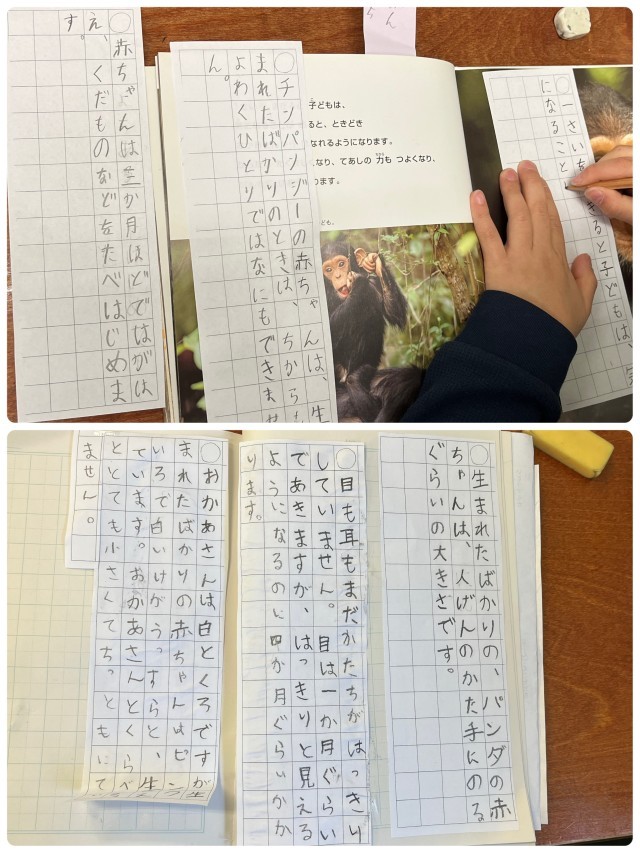 ○一さい
きると子どもは、
になること
子どもは、
ると、ときどき
なれるようになります。
なり、てあしの 力も つよくなり、
ります。
○チンパンジーの赤ちゃんは、生
まれたばかりのときは、ちからも
よわくひとりではなにもできませ
ん。
○赤ちゃんは三か月ほどではがは
え、くだものなどをたべはじめま
す。
○生まれたばかりの、パンダの赤
ちゃんは、人げんのかた手にのる
ぐらいの大きさです。
○目も耳もまだかたちがはっきり
していません。目は一か月ぐらい
であきますが、はっきりと見える
ようになるのに四か月ぐらいかか
ります。
○おかあさんは白とくろですが生
まれたばかりの赤ちゃんはピン
いろで白いけがうっすらと、生
ています。おかあさんとくらべ
ととても小さくてちっともにて
ません。